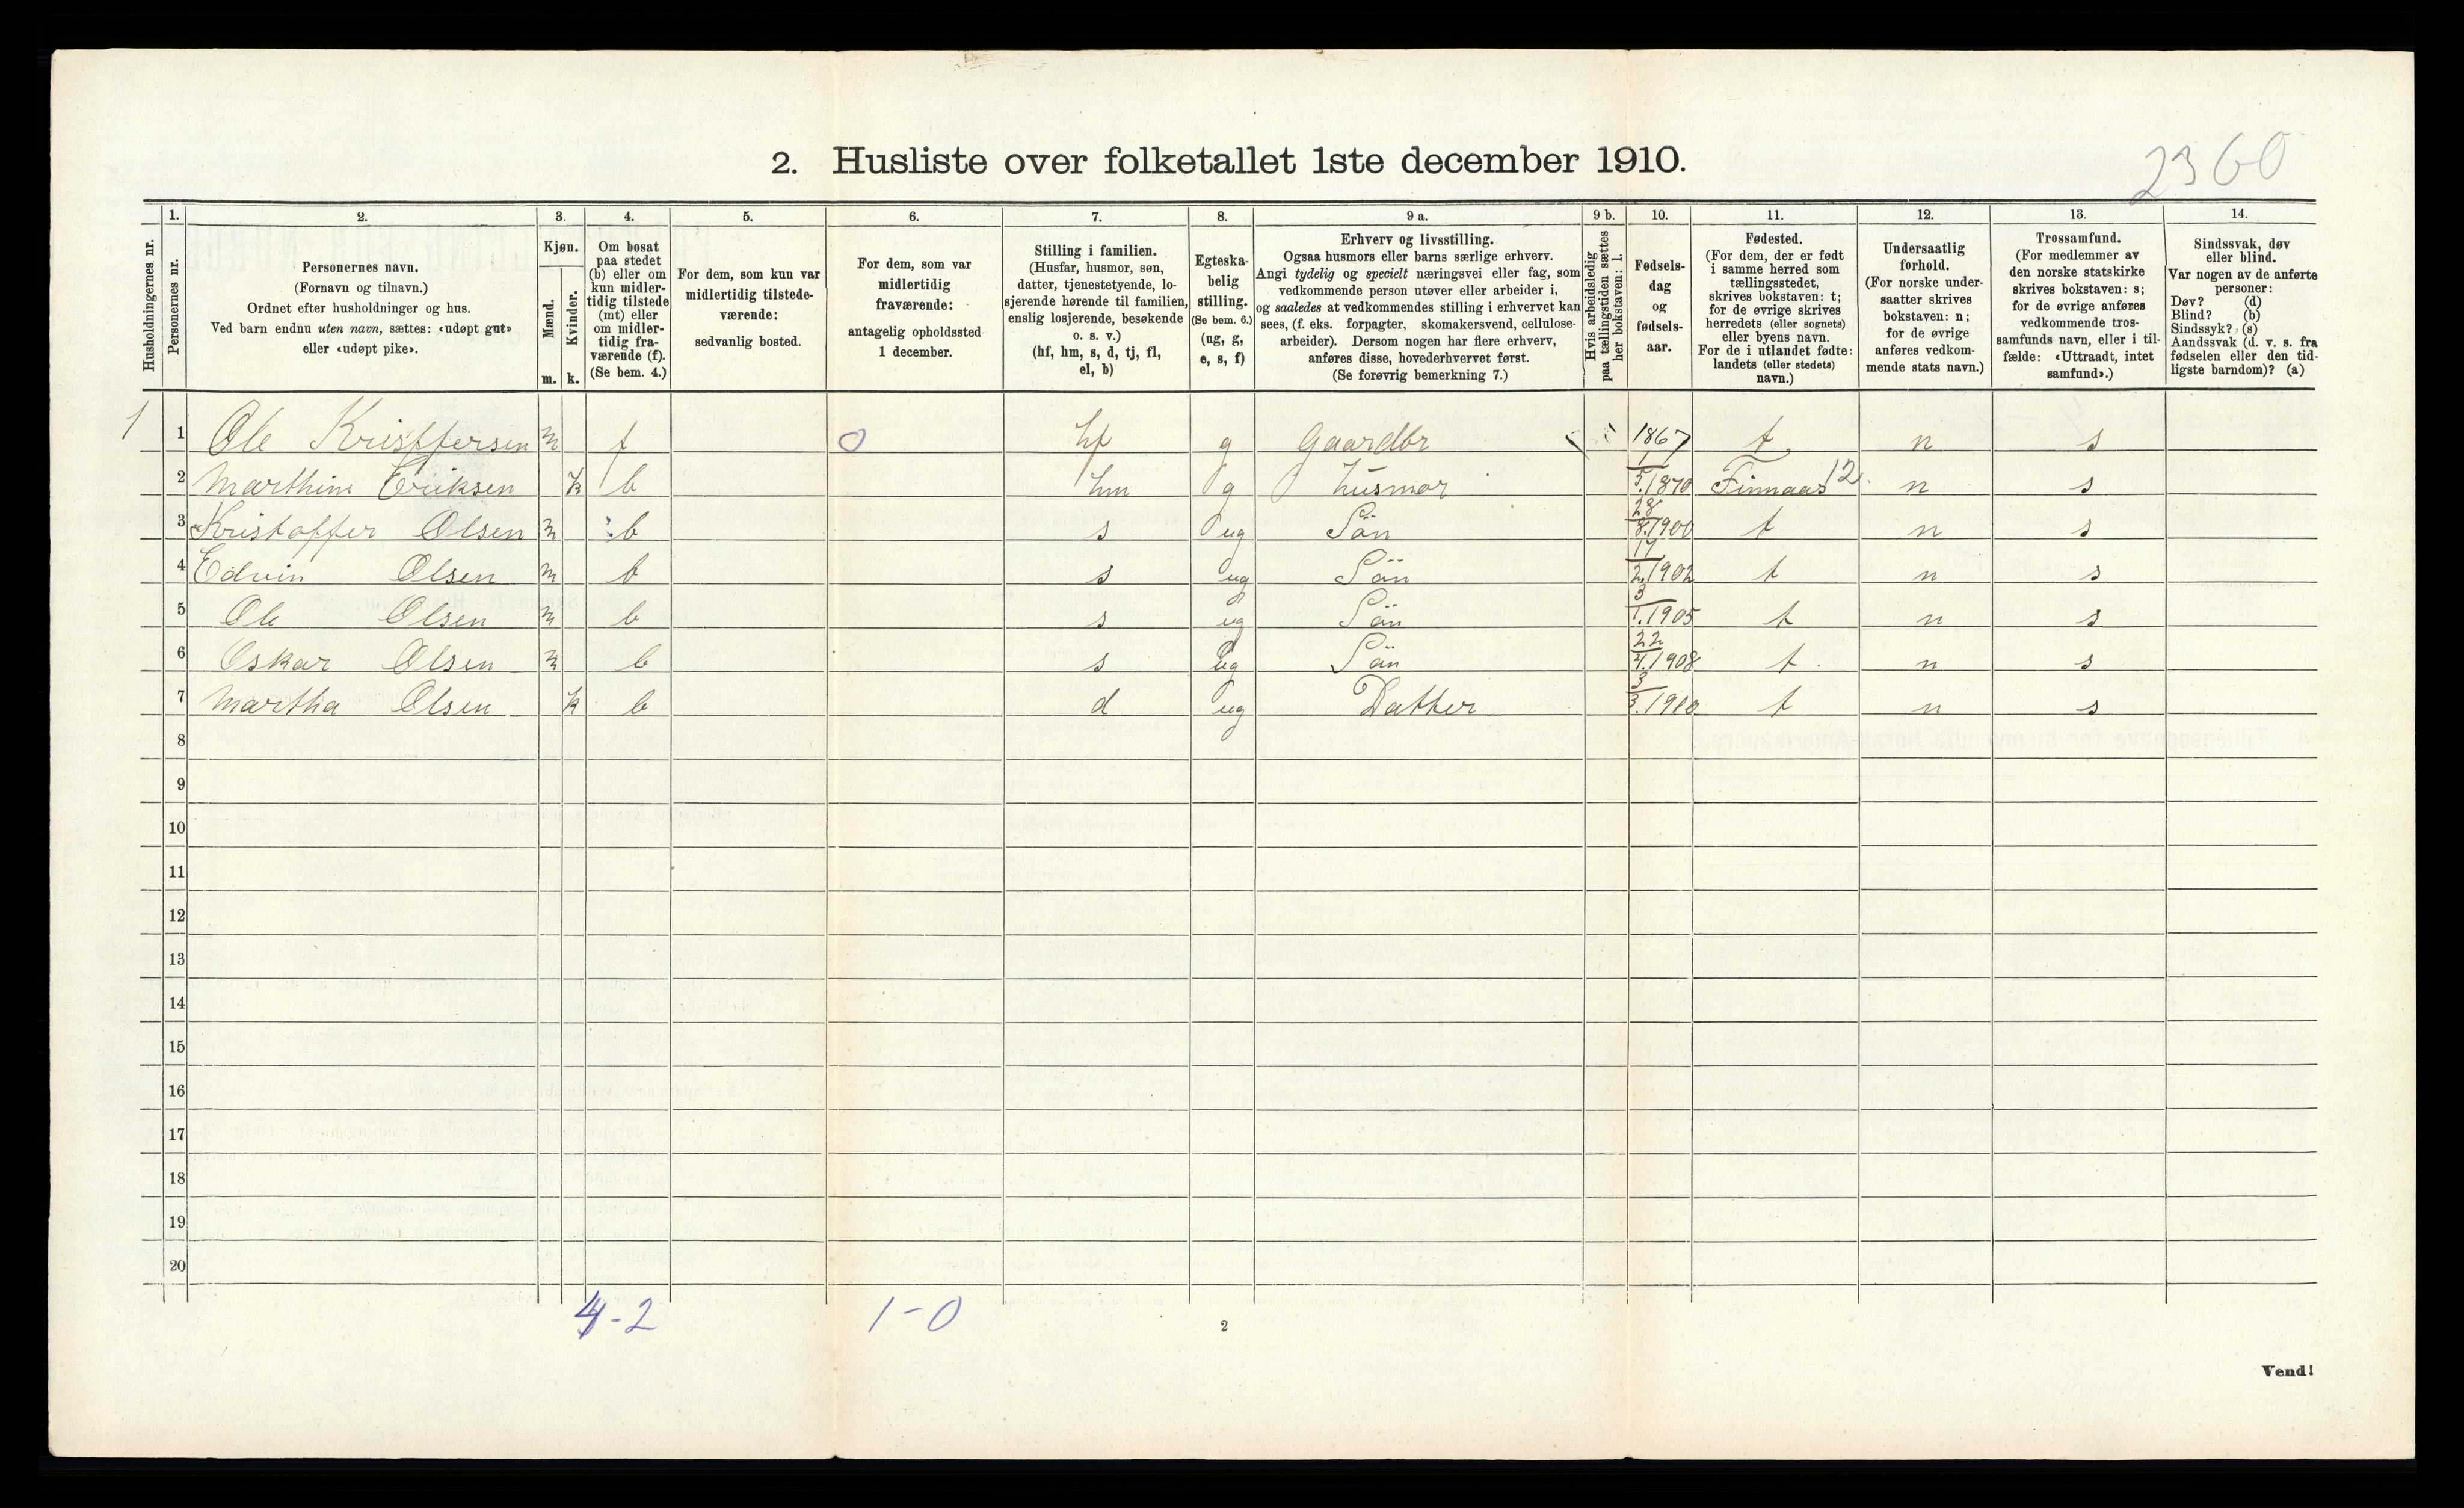 2360
2. Husliste over folketallet 1ste december 1910.
Husholdningernes nr.
1.
Personernes nr.
2.
Personernes navn.
(Fornavn og tilnavn.)
Ordnet efter husholdninger og hus.
Ved barn endnu uten navn, sættes: «udøpt gut»
eller «udøpt pike».
3.
Kjøn.
Mænd.
Kvinder.
m. k.
4.
Om bosat
paa stedet
(b) eller om
kun midler-
tidig tilstede
(mt) eller
om midler-
tidig fra-
værende (f).
(Se bem. 4.)
5.
For dem, som kun var
midlertidig tilstede-
værende:
sedvanlig bosted.
6.
For dem, som var
midlertidig
fraværende:
antagelig opholdssted
1 december.
7.
Stilling i familien.
(Husfar, husmor, søn,
datter, tjenestetyende, lo-
sjerende hørende til familien,
enslig losjerende, besøkende
o. s. v.)
(hf, hm, s, d, tj, fl,
el, b)
8.
Egteska-
belig
stilling.
(Se bem. 6.)
(ug, g,
e, s, f)
9 a.
Erhverv og livsstilling.
Ogsaa husmors eller barns særlige erhverv.
Angi tydelig og specielt næringsvei eller fag, som
vedkommende person utøver eller arbeider i,
og saaledes at vedkommendes stilling i erhvervet kan
sees, (f. eks. forpagter, skomakersvend, cellulose-
arbeider). Dersom nogen har flere erhverv,
anføres disse, hovederhvervet først.
(Se forøvrig bemerkning 7.)
9 b.
Hvis arbeidsledig
paa tællingstiden sættes
her bokstaven: l.
10.
Fødsels-
dag
og
fødsels-
aar.
11.
Fødested.
(For dem, der er født
i samme herred som
tællingsstedet,
skrives bokstaven: t;
for de øvrige skrives
herredets (eller sognets)
eller byens navn.
For de i utlandet fødte:
landets (eller stedets)
navn.)
12.
Undersaatlig
forhold.
(For norske under-
saatter skrives
bokstaven: n;
for de øvrige
anføres vedkom-
mende stats navn.)
13.
Trossamfund.
(For medlemmer av
den norske statskirke
skrives bokstaven: s;
for de øvrige anføres
vedkommende tros-
samfunds navn, eller i til-
fælde: «Uttraadt, intet
samfund».)
14.
Sindssvak, døv
eller blind.
Var nogen av de anførte
personer:
Døv? (d)
Blind? (b)
Sindssyk? (s)
Aandssvak (d. v. s. fra
fødselen eller den tid-
ligste barndom)? (a)
1 1 Ole Kristffersen m f 0 hf g Gaardbr 1867 t n s
2 Marthine Eriksen k b hm g husmor 1/5.1870 Finnaas 12 n s
3 Kristoffer Olsen m b s ug Sön 28/8.1900 t n s
4 Edvin Olsen m b s ug Sön 17/2.1902 t n s
5 Ole Olsen m b s ug Sön 3/1.1905 t n s
6 Oskar Olsen m b s ug Sön 22/4.1908 t n s
7 Martha Olsen k b d ug Datter 3/3.1910 t n s
8
9
10
11
12
13
14
15
16
17
18
19
20
4-2 1-0
2
Vend!